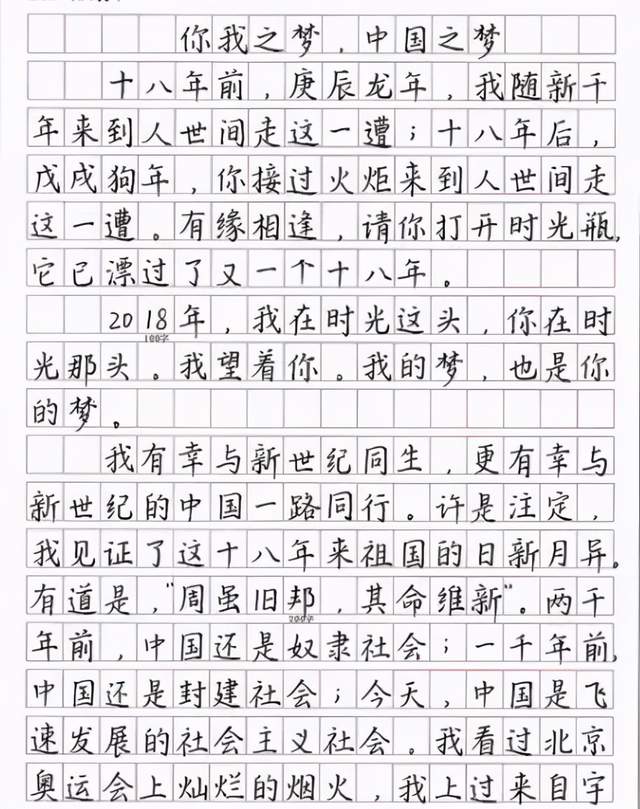 你我之梦，中国之梦
十八年前，庚辰龙年，我随新千
年来到人世间走这一遭；十八年后，
戊戌狗年，你接过火炬来到人世间走
这一遭。有缘相逢，请你打开时光瓶，
它已漂过了又一个十八年。
2018年，我在时光这头，你在时
100字
光那头。我望着你。我的梦，也是你
的梦。
我有幸与新世纪同生，更有幸与
新世纪的中国一路同行。许是注定，
我见证了这十八年来祖国的日新月异。
有道是，“周虽旧邦，其命维新”。两千
200字
年前，中国还是奴隶社会；一千年前，
中国还是封建社会；今天，中国是飞
速发展的社会主义社会。我看过北京
奥运会上灿烂的烟火，我上过来自宇